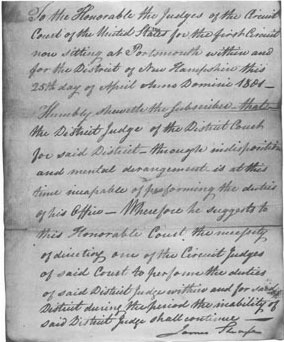 To the Honorable the Judges of the Circuit
Court of the United States for the first Circuit
now sitting at Portsmouth within and
for the District of New Hampshire this
25th day of April Anno Domini 1801 –
Humbly sheweth the Subscriber that –
the District Judge of the District Court
for said District – through indisposition
and mental derangement is at this
time incapable of performing the duties
of his Office – Wherefore he suggests to
this Honorable Court, the necessity
of directing one of the Circuit Judges
of said Court to perform the duties
of said District Judge within and for said
District during the period the inability of
said District Judge shall continue –
James Sheafe